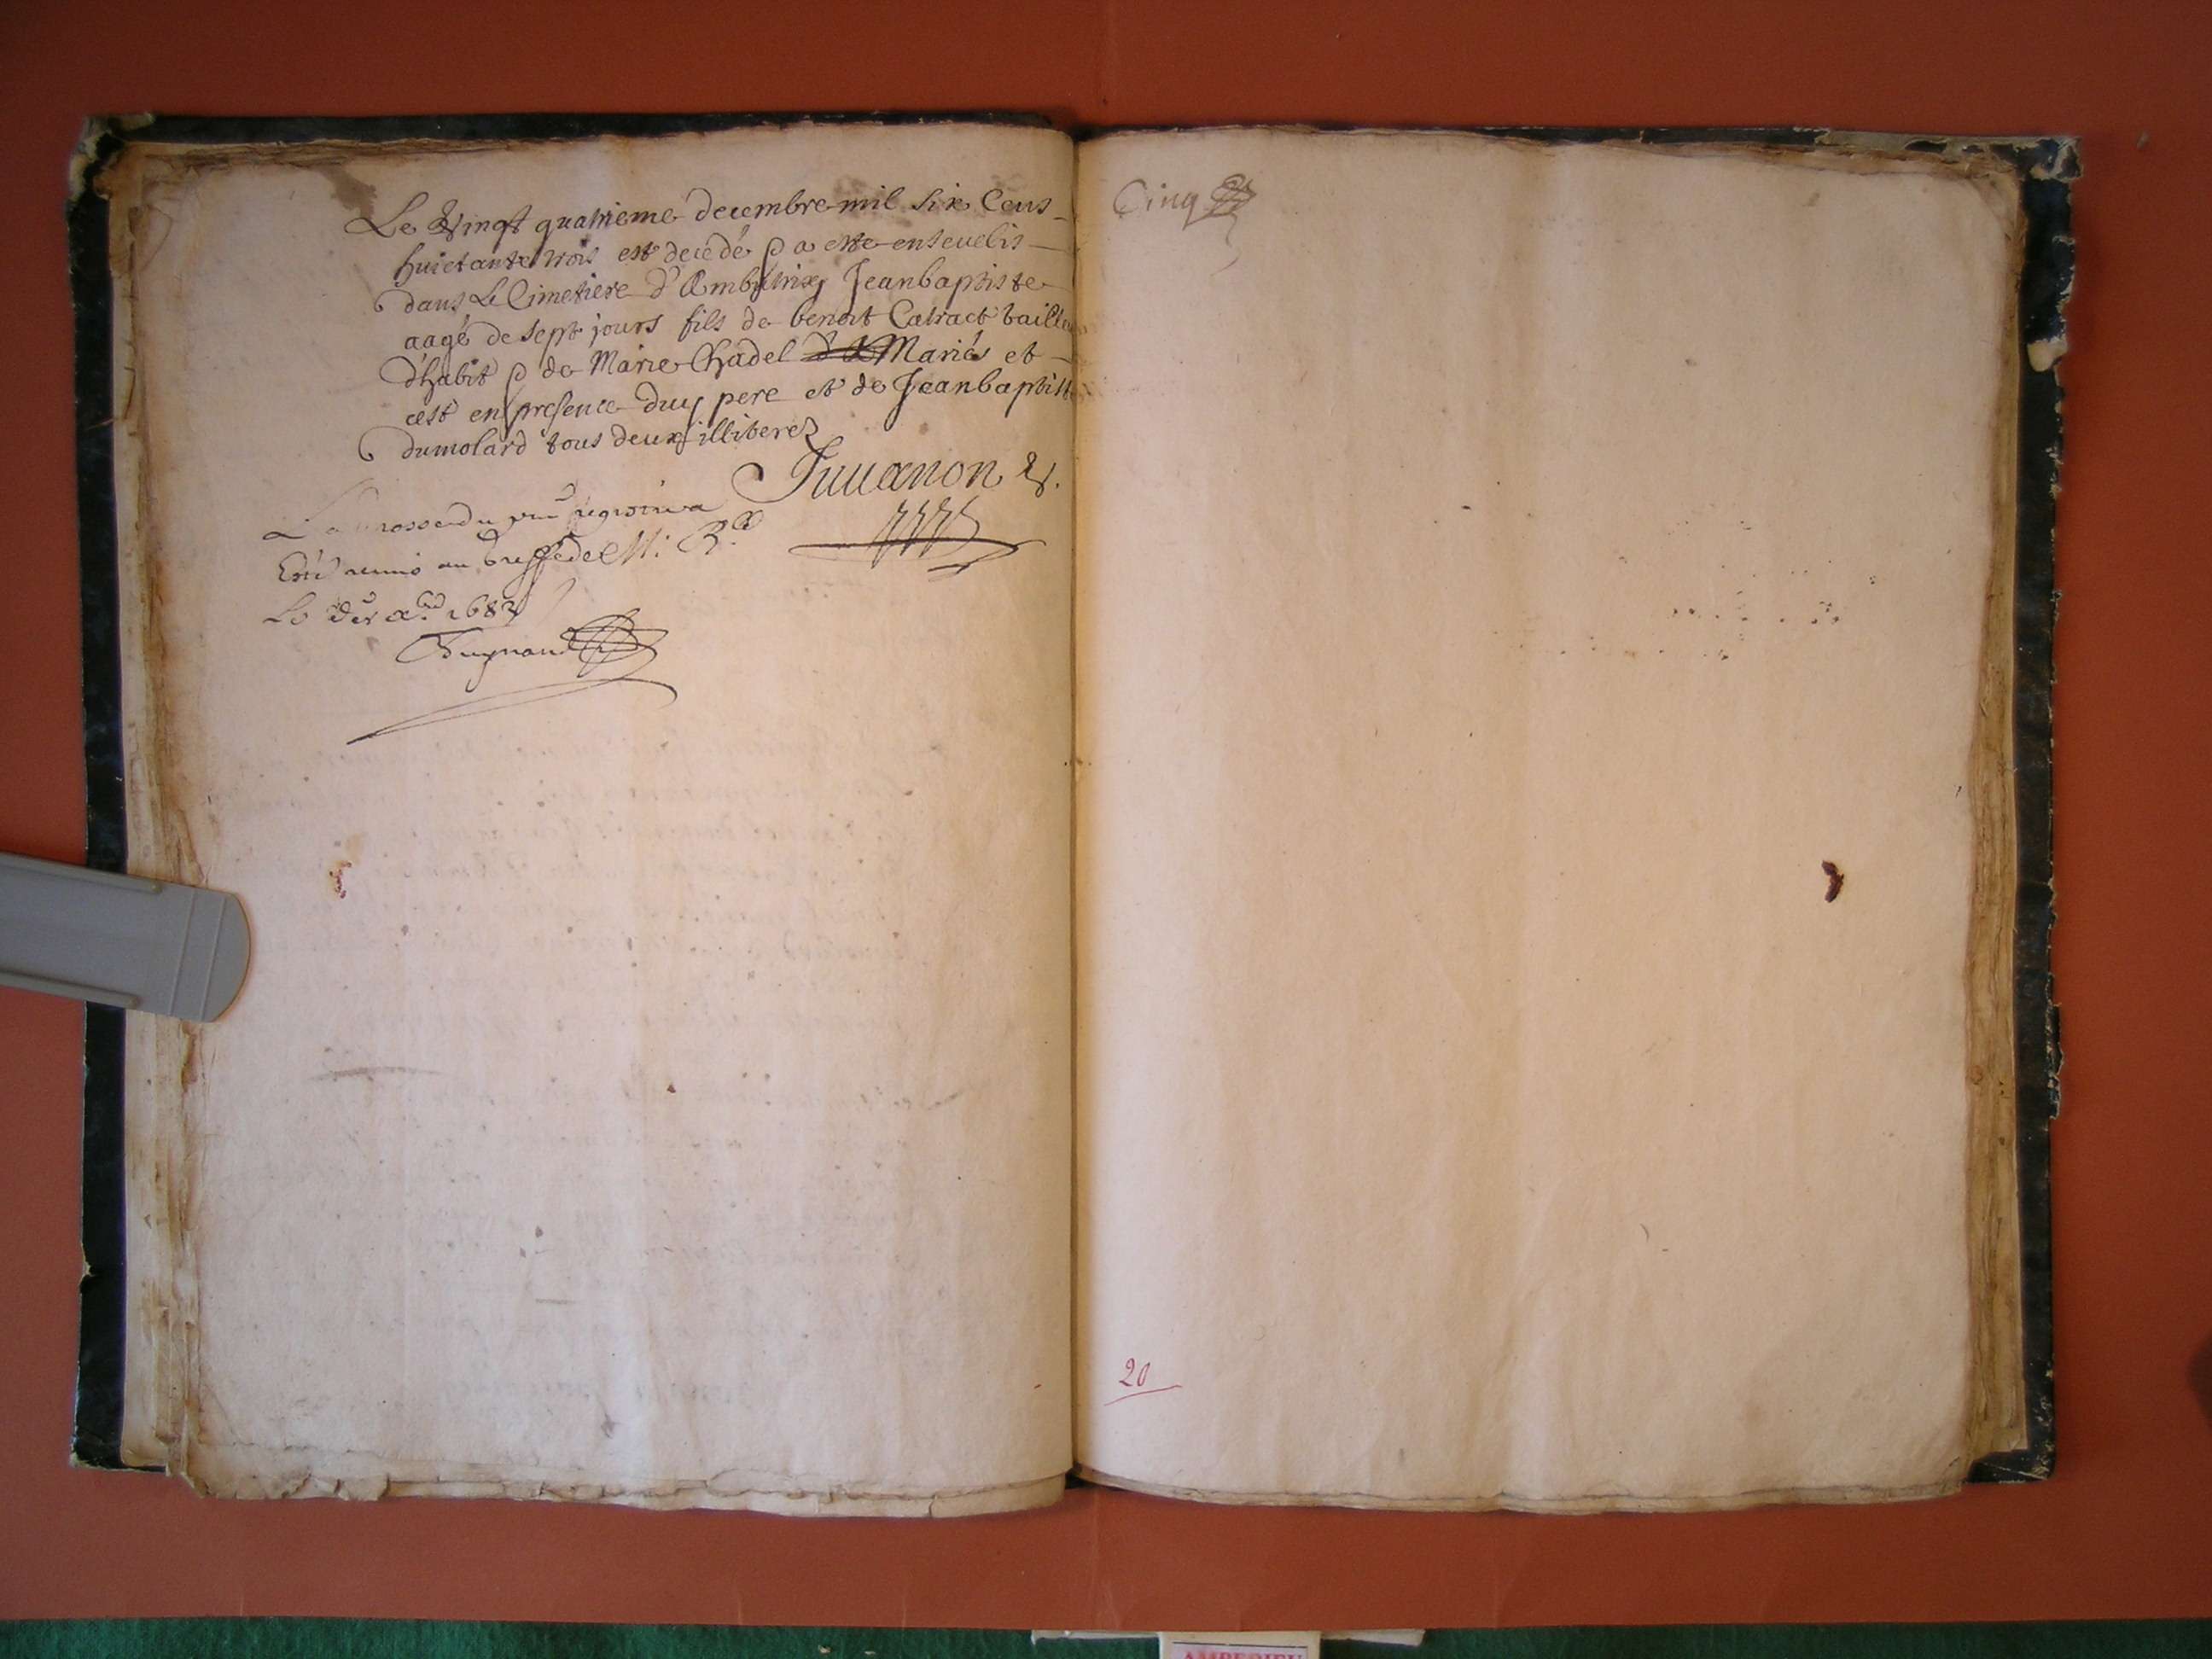 Le Vingt quatrieme decembre mil six Cens
huictante trois est decedé & a este ensevelis
dans Le Cimetiere d'Ambutrix Jeanbaptiste
aagé de sept jours fils de benoit Catract taill
d'habit & de Marie Chadel Mariés et
cest en presence duy pere et de Jeanbaptist
dumolard tous deux illiterez
Juuanon
La grosse du
au greffe de M. R.
Le 1683
Cinq
20
AMBERIEU